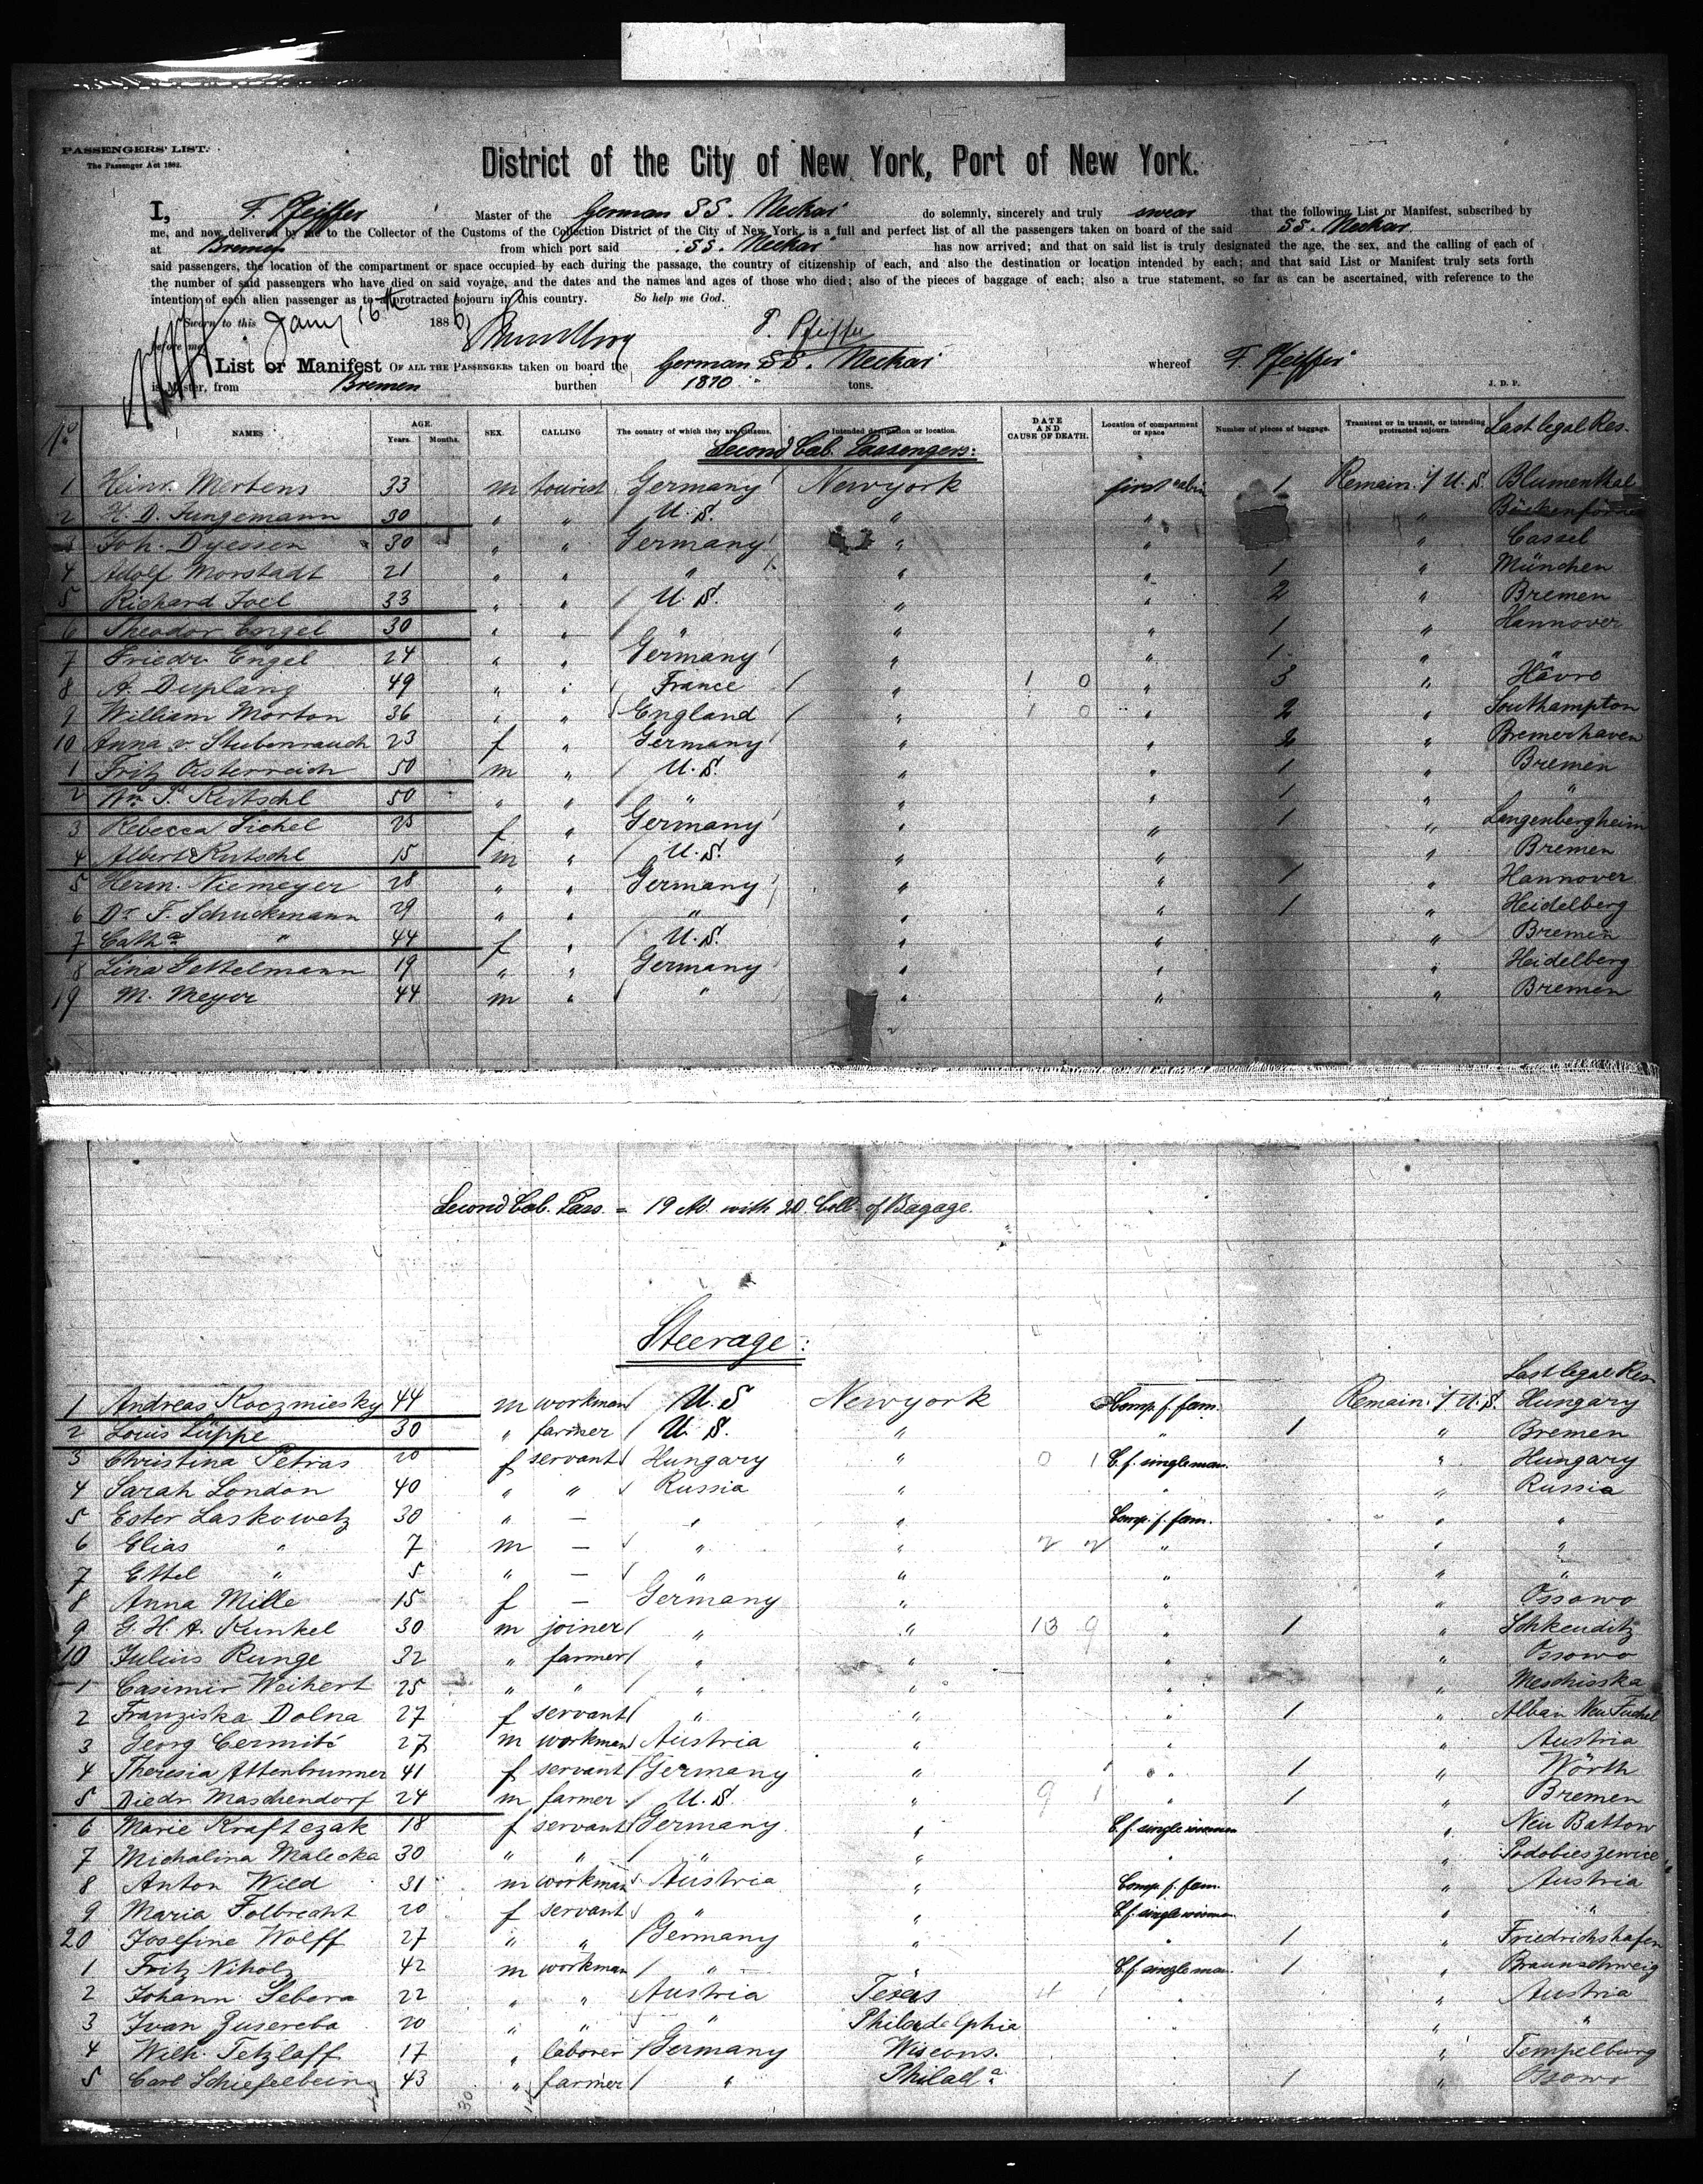 PASSENGERS' LIST.
The Passenger Act 1882.
District of the City of New York, Port of New York.
I, F. Pfeiffer Master of the German SS. Neckar do solemnly, sincerely and truly swear that the following List or Manifest, subscribed by
me, and now delivered by me to the Collector of the Customs of the Collection District of the City of New York, is a full and perfect list of all the passengers taken on board of the said SS. Neckar
at Bremen from which port said SS. Neckar has now arrived; and that on said list is truly designated the age, the sex, and the calling of each of
said passengers, the location of the compartment or space occupied by each during the passage, the country of citizenship of each, and also the destination or location intended by each; and that said List or Manifest truly sets forth
the number of said passengers who have died on said voyage, and the dates and the names and ages of those who died; also of the pieces of baggage of each; also a true statement, so far as can be ascertained, with reference to the
intention of each alien passenger as to a protracted sojourn in this country. So help me God.
Sworn to this Jany 16th 1886
before me F. Pfeiffer
List or Manifest OF ALL THE PASSENGERS taken on board the German SS. Neckar whereof F. Pfeiffer
is Master, from Bremen burthen 1870 tons. J. D. P.
NAMES AGE. Years. Months. SEX. CALLING The country of which they are citizens. Intended destination or location. DATE AND CAUSE OF DEATH. Location of compartment or space Number of pieces of baggage. Transient or in transit, or intending protracted sojourn. Last legal Res.
Second Cab. Passengers:
1 Heinr. Mertens 33 m tourist Germany Newyork first cabin 1 Remain. i/ U. S. Blumenthal
2 H. D. Jungemann 30 " " U. S. " " "
3 Joh. Dyessen 30 " " Germany " " " Cassel
4 Adolf Morstadt 21 " " " " " 1 " München
5 Richard Joel 33 " " U. S. " " 2 " Bremen
6 Theodor Engel 30 " " " " " 1 " Hannover
7 Friedr. Engel 24 " " Germany " " 1 " "
8 A. Duplang 49 " " France " 1 0 " 3 " Havre
9 William Morton 36 " " England " 1 0 " 2 " Southampton
10 Anna v. Stubenrauch 23 f " Germany " " 2 " Bremerhaven
1 Fritz Oesterreich 50 m " U. S. " " 1 " Bremen
2 Wm. P. Rutschl 50 " " " " " 1 " "
3 Rebecca Sichel 25 f " Germany " " 1 " Langenbergheim
4 Albert Rutschl 15 m " U. S. " " " Bremen
5 Herm. Niemeyer 28 " " Germany " " 1 " Hannover
6 Dr. F. Schuckmann 29 " " " " " 1 " Heidelberg
7 Catha " 44 f " U. S. " " " Bremen
8 Lina Gettelmann 19 " " Germany " " " Heidelberg
19 M. Meyer 44 m " " " " " Bremen
Second Cab. Pass. = 19 Ad. with 20 Coll. of Bagage.
Steerage:
Last legal Res.
1 Andreas Koczmiesky 44 m workman U. S Newyork Comp. f. fam. Remain. i/ U. S. Hungary
2 Louis Lüppe 30 " farmer U. S. " " 1 " Bremen
3 Christina Petras 20 f servant Hungary " 0 1 C. f. singleman. " Hungary
4 Sarah London 40 " " Russia " " " Russia
5 Ester Laskowetz 30 " — " " Comp. f. fam. " "
6 Elias " 7 m — " " 2 2 " " "
7 Ettel " 5 " — " " " " "
8 Anna Mille 15 f — Germany " " " Ossowo
9 G. H. A. Kunkel 30 m joiner " " 13 9 " 1 " Schkeuditz
10 Julius Runge 32 " farmer " " " " Ossowo
1 Casimir Weihert 25 " " " " " " Meschisska
2 Franziska Dolna 27 f servant " " " 1 " Alban Neu Tuchel
3 Georg Cermiti 27 m workman Austria " " " Austria
4 Theresia Attenbrunner 41 f servant Germany " " 1 " Wörth
5 Diedr. Maschendorf 24 m farmer U. S. " 9 1 " 1 " Bremen
6 Marie Kraftczak 18 f servant Germany " C. f. single women " Neu Battow
7 Michalina Malecka 30 " " " " " "
8 Anton Wild 31 m workman Austria " Comp. f. fam. " Austria
9 Maria Folbrecht 20 f servant " " C. f. single women " "
20 Josefine Wolff 27 " " Germany " " 1 " Friedrichshafen
1 Fritz Niholz 42 m workman " " C. f. single man. 1 " Braunschweig
2 Johann Sebera 22 " " Austria Texas " " Austria
3 Ivan Zusereba 20 " " " Philadelphia " " "
4 Wilh. Tetzlaff 17 " laborer Germany Wiscons. " " Tempelburg
5 Carl Schiefelbein 43 " farmer " Philada. " 1 "